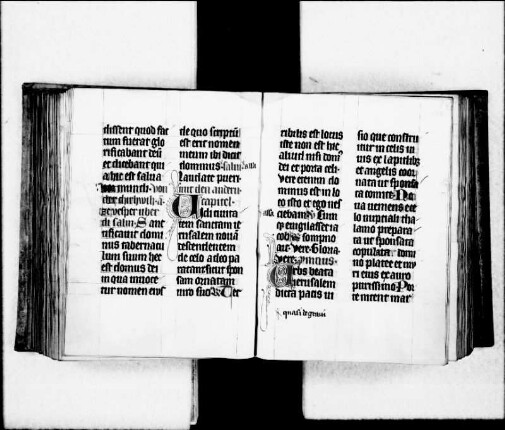 dissent quod fac
tum fuerat glo
rificabant deū
et dicebant qui
a hic est
ze vesper uber
Sanc
tificauit domi
nus tabernacu
lum suum hec
est domus dei
in qua inuoce
tur nomen eius
de quo scriptū
est erit nomen
meum ibi dicit
dominus
laudate pueri
den andern
capitel
Uidi ciuita
tem sanctam ie
rusalem nouā
descendentem
de celo a deo pa
ratam sicut spon
sam ornatam
uiro suo Ter
ribilis est locus
iste non est hic
aliud nisi dom
dei et porta celi
vere etenim do
minus est in lo
co isto et ego nes
ciebam Cum
euigilasset ia
cob de sompno
ait vere Gloria
vere ymnus
Urbs beata
iherusalem
dicta pacis ui
sio que constru
itur in celis ui
uis ex lapidibꝫ
et angelis coor
nata ut sponsa
ta comite No
ua ueniens e ce
lo nuptiali tha
lamo prepara
ta ut sponsata
copulatur domi
no platee et mu
ri eius ex auro
purissimo Por
te nitent mar
quasi